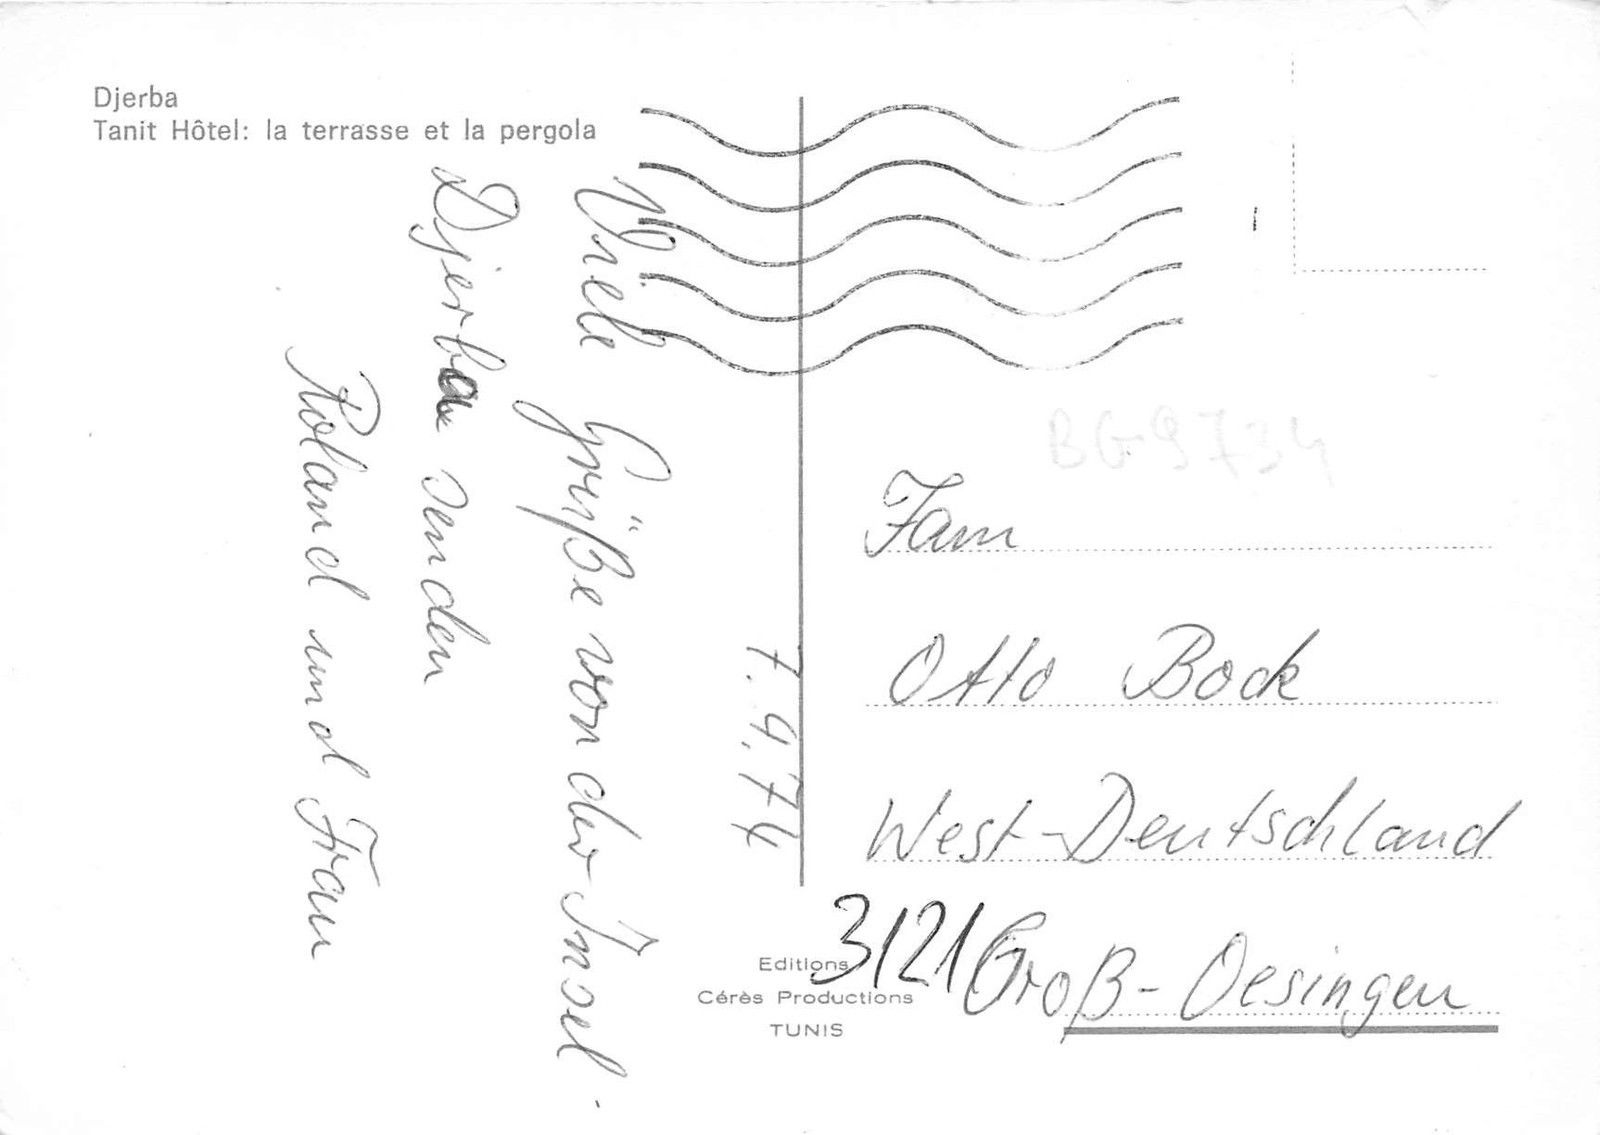 Djerba
Tanit Hôtel: la terrasse et la pergola
7.9.74
Viele Grüße von der Insel
Djerba senden
Roland und Frau
BG9734
Fam
Otto Bock
West-Deutschland
3121 Groß-Oesingen
Editions
Cérès Productions
TUNIS